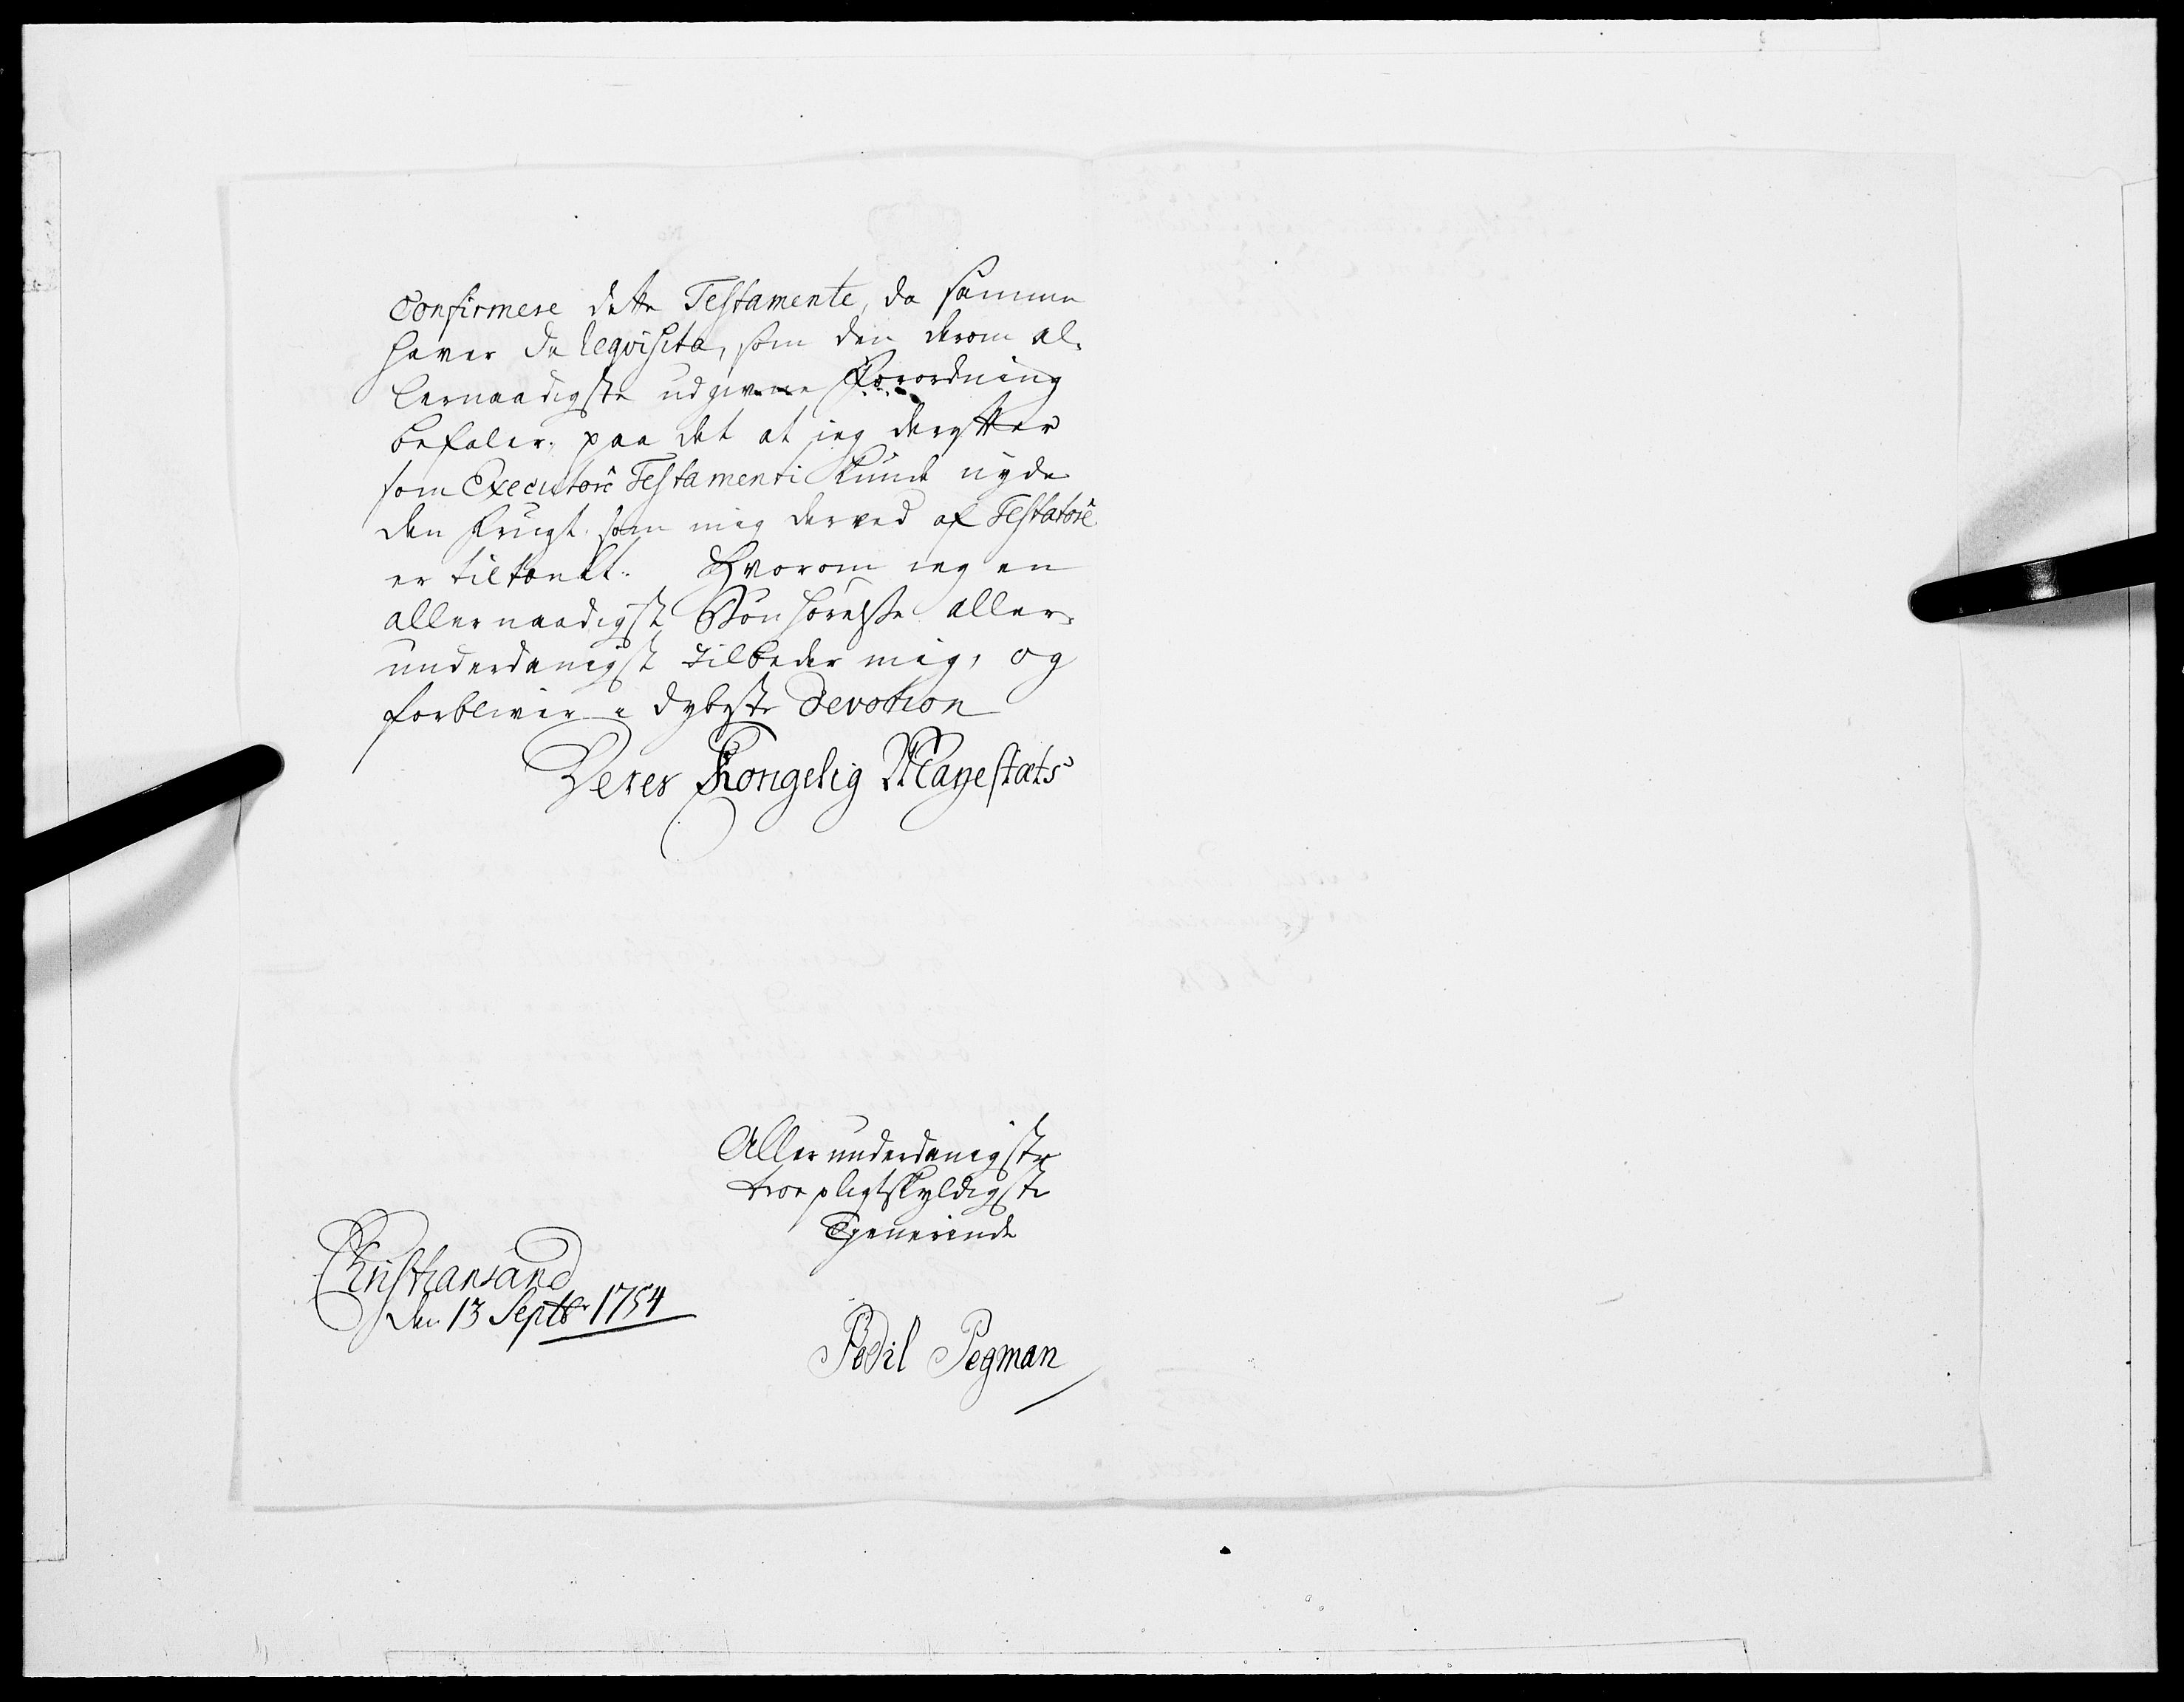 Confirmere dette Testamente, da samme
haver de reqvisita, som den derom al-
lernaadigste udgivne Forordning
befaler, paa det at jeg derefter
som Executore Testamenti kunde nyde
den Frugt som mig derved af Testatore
er tiltænkt. Hvorom jeg en
allernaadigst Bønhørelse aller-
underdanigst tilbeder mig, og
forbliver i dybeste Devotion
Deres Kongelig Mayestæts
Allerunderdanigste
troe pligtskyldigste
Tienerinde
Christiansand
den 13 Septbr 1754
Bodil Pegman